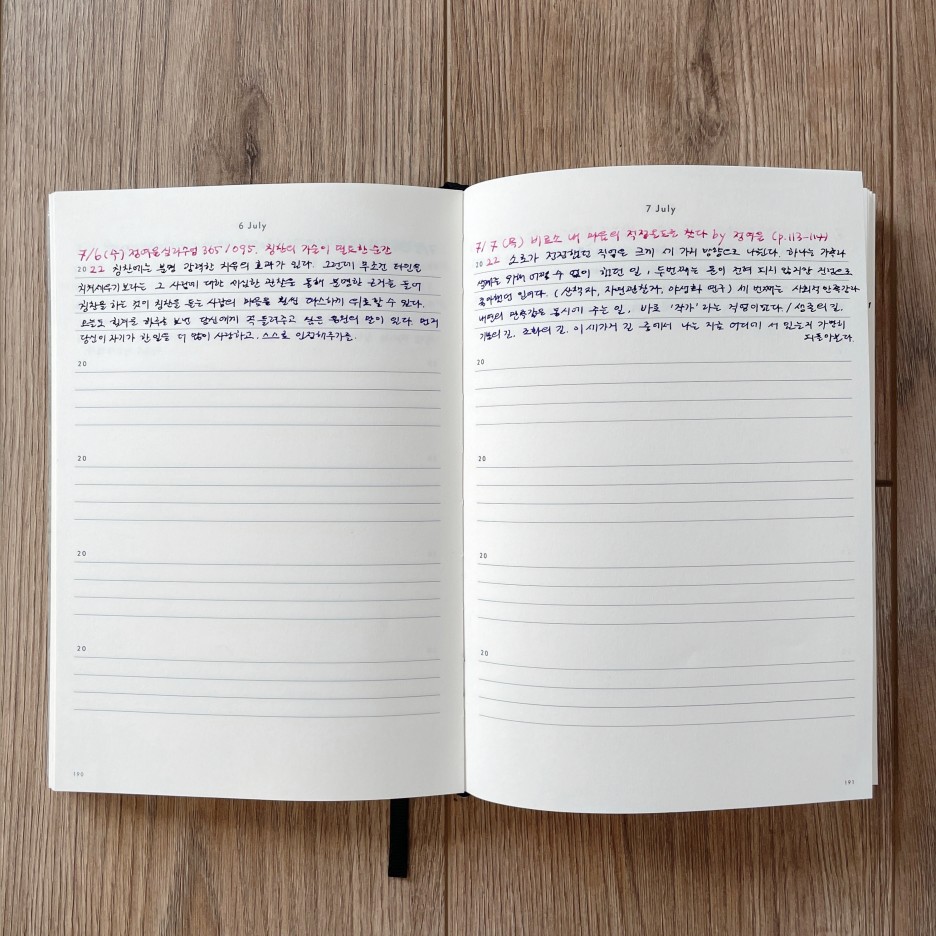 6 July
7/6(수) 정여울심리수업 365/095. 칭찬의 기술이 필요한 순간
2022 칭찬에는 분명 강력한 치유의 효과가 있다. 그런데 무조건 타인을
치켜세우기보다는 그 사람에 대한 세심한 관찰을 통해 분명한 근거를 들어
칭찬을 하는 것이 칭찬을 듣는 사람의 마음을 훨씬 따스하게 위로할 수 있다.
오늘도 힘겨운 하루를 보낸 당신에게 꼭 들려주고 싶은 응원의 말이 있다. 먼저
당신이 자기가 한 일을 더 많이 사랑하고, 스스로 인정해주기를.
20
20
20
20
190
7 July
7/7(목) 비로소 내 마음의 적정온도를 찾다 by 정여울 (p.113-114)
2022 소로가 진정했던 직업은 크게 세 가지 방향으로 나뉜다. 하나는 가족과
생계를 위해 어쩔 수 없이 했던 일, 두번째는 돈이 전혀 되지 않지만 진심으로
좋아했던 일이다. (산책자, 자연관찰자, 야생화 연구) 세 번째는 사회적 만족감과
내면의 만족감을 동시에 주는 일, 바로 '작가'라는 직업이었다. / 생존의 길,
기쁨의 길, 조화의 길, 이 세가지 길 중에서 나는 지금 어디에 서 있는지 가만히
되돌아본다.
20
20
20
20
191